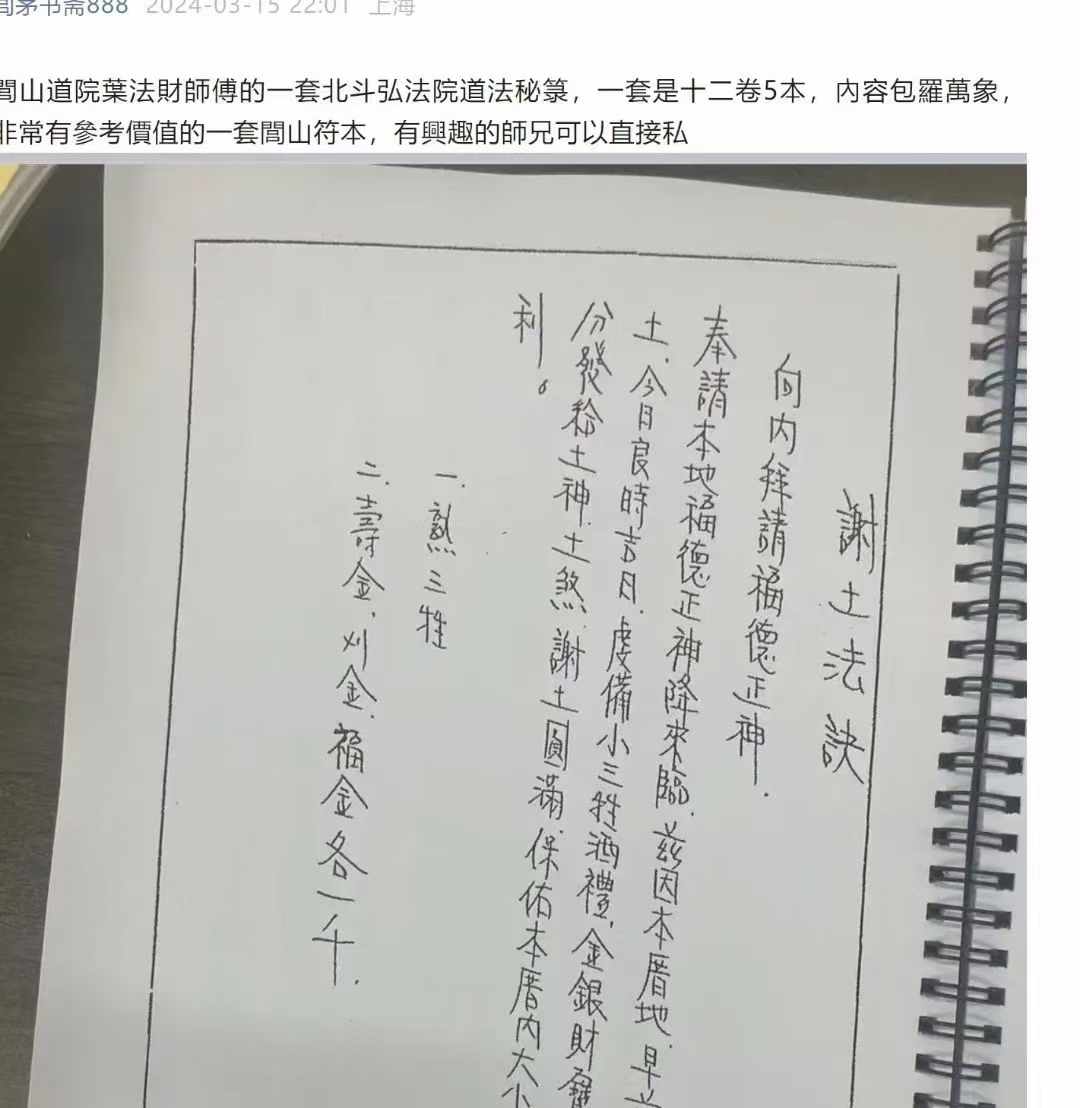 茅书斋888 2024-03-15 22:01 上海
閭山道院葉法財師傅的一套北斗弘法院道法秘箓，一套是十二卷5本，內容包羅萬象，
非常有參考價值的一套閭山符本，有興趣的師兄可以直接私
謝土法訣
向内拜請福德正神.
奉請本地福德正神降來臨.茲因本厝地.早
土.今日良時吉日.虔備小三牲酒禮.金銀財
分發給土神.土煞.謝土圓滿.保佑本厝内大小
利。
一.熟三牲
二.壽金.刈金.福金各一千.